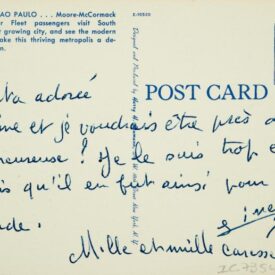 AO PAULO . . . Moore-McCormack
r Fleet passengers visit South
t growing city, and see the modern
ake this thriving metropolis a de-
on.
E-10320
Designed and Produced by Harry H.
New York, N.Y.
POST CARD
ta adorée
me et je voudrais être près
heureuse! Je le suis trop
is qu'il en fut ainsi pour
de.
Mille et mille caresses